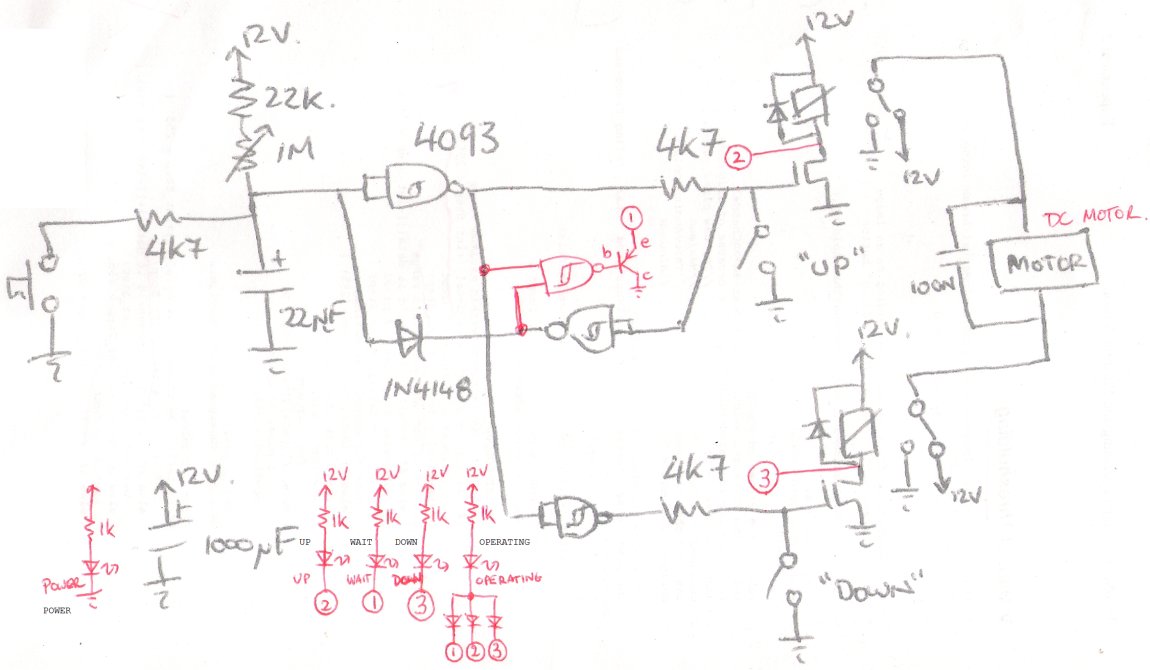 12V.
22K.
1M
4K7
+
22µF
4093
1N4148
4K7
2
12V
12V
"UP"
1
b
e
c
100N
DC MOTOR.
MOTOR
12V.
4K7
3
12V
"DOWN"
1K
POWER
POWER
12V.
+
1000µF
12V
12V
12V
12V
1K
1K
1K
1K
UP
WAIT
DOWN
OPERATING
UP
WAIT
DOWN
OPERATING
2
1
3
1
2
3